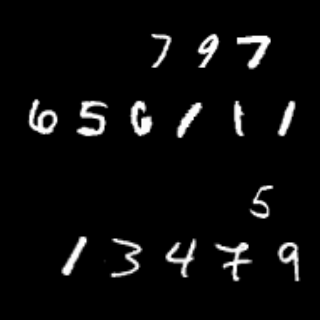 797
656111
5
13479